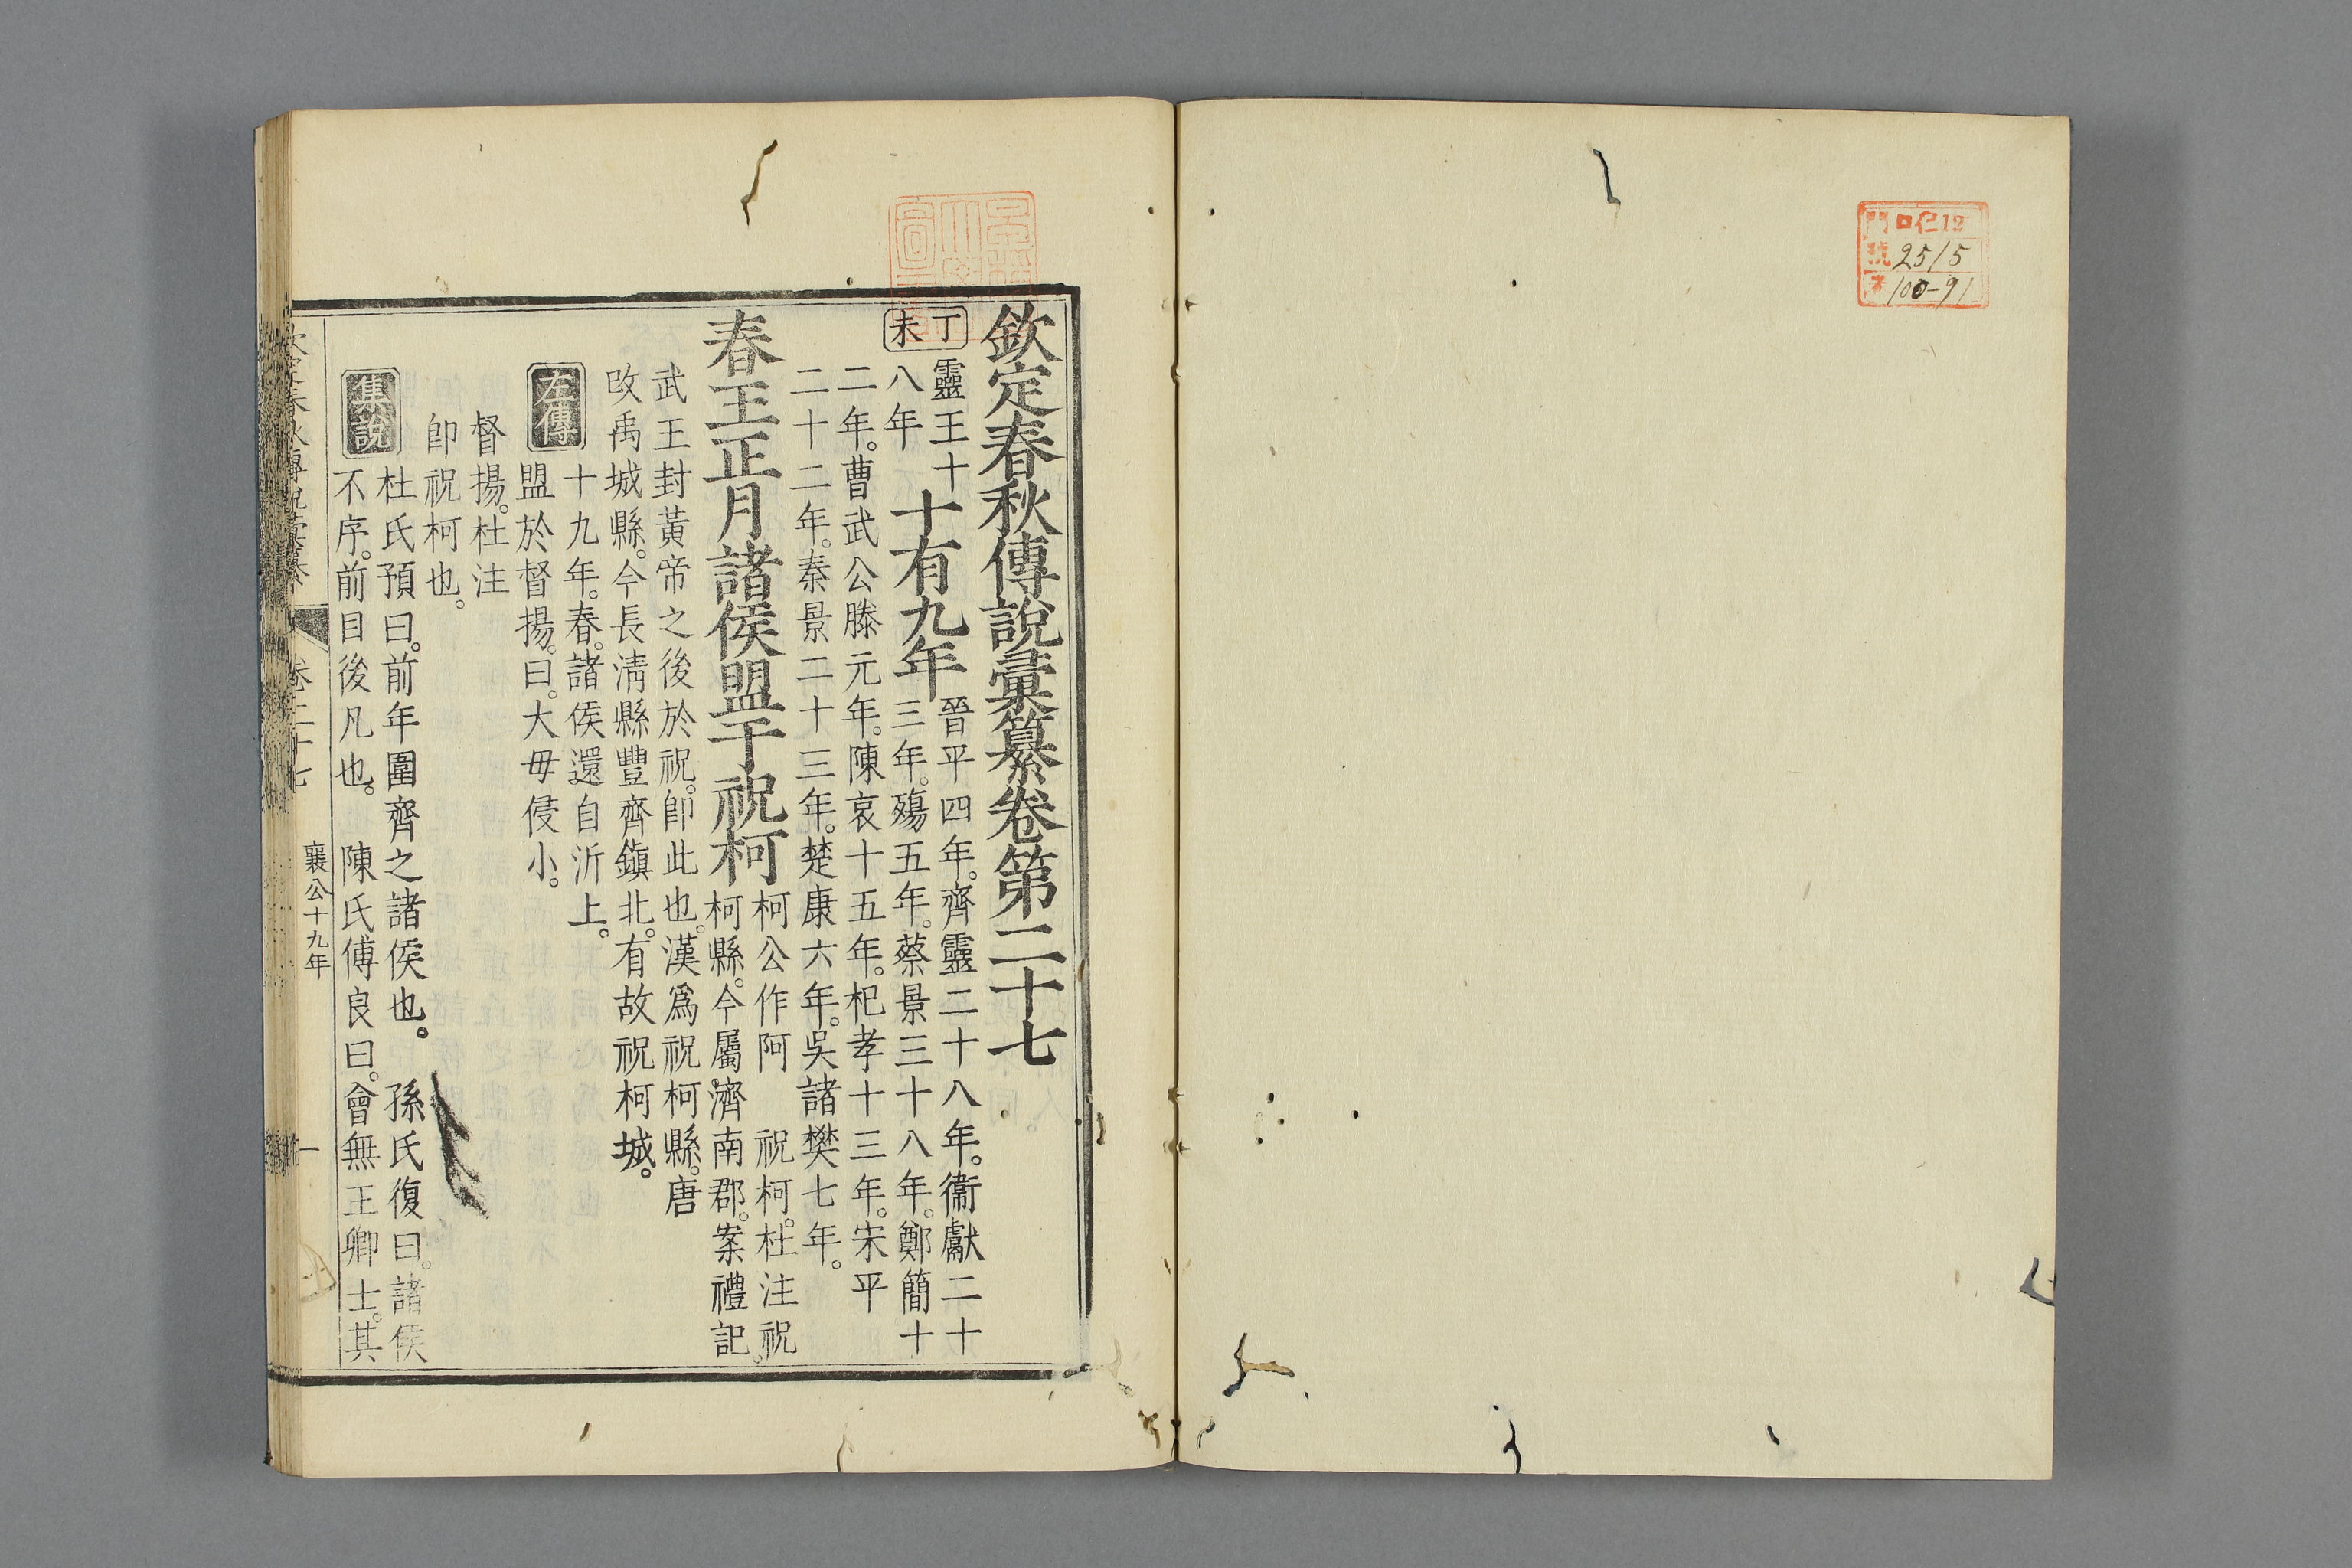 門 口仁12
號 2515
100-91
欽定春秋傳說彙纂卷第二十七
丁未
靈王十
八年
十有九年
晉平四年。齊靈二十八年。衞獻二十
三年。殤五年。蔡景三十八年。鄭簡十
二年。曹武公滕元年。陳哀十五年。杞孝十三年。宋平
二十二年。秦景二十三年。楚康六年。吳諸樊七年。
春王正月諸侯盟于祝柯
柯公作阿 祝柯。杜注祝
柯縣。今屬濟南郡。案禮記。
武王封黃帝之後於祝。卽此也。漢爲祝柯縣。唐
改禹城縣。今長淸縣豐齊鎭北。有故祝柯城。
左傳
十九年。春。諸侯還自沂上。
盟於督揚。曰。大毋侵小。
督揚。杜注
卽祝柯也。
集說
杜氏預曰。前年圍齊之諸侯也。 孫氏復曰。諸侯
不序。前目後凡也。 陳氏傅良曰。會無王卿士。其
卷二十七
襄公十九年
一